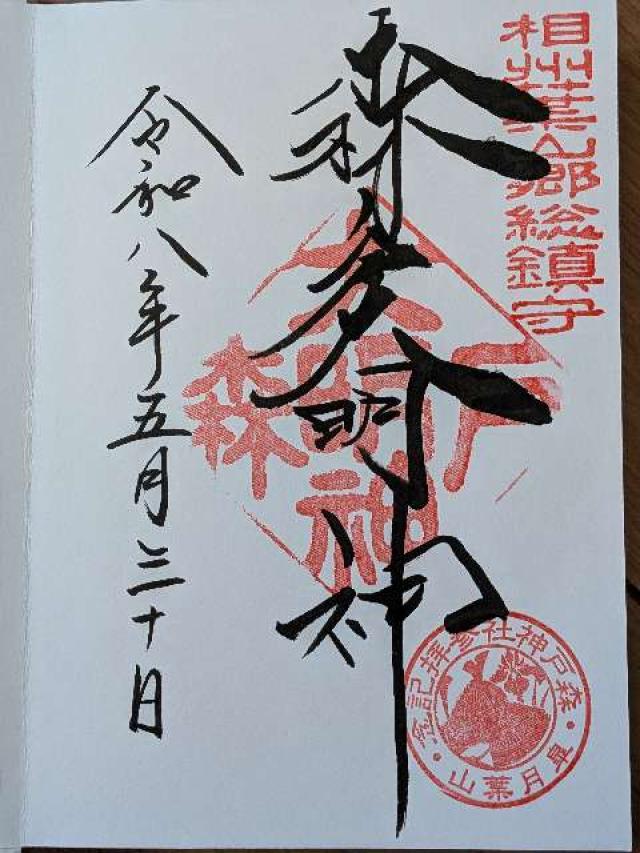 相州葉山郷総鎮守
森戸大明神
森戸大明神
森戸神社参拝記念・皐月葉山・
令和八年五月三十日